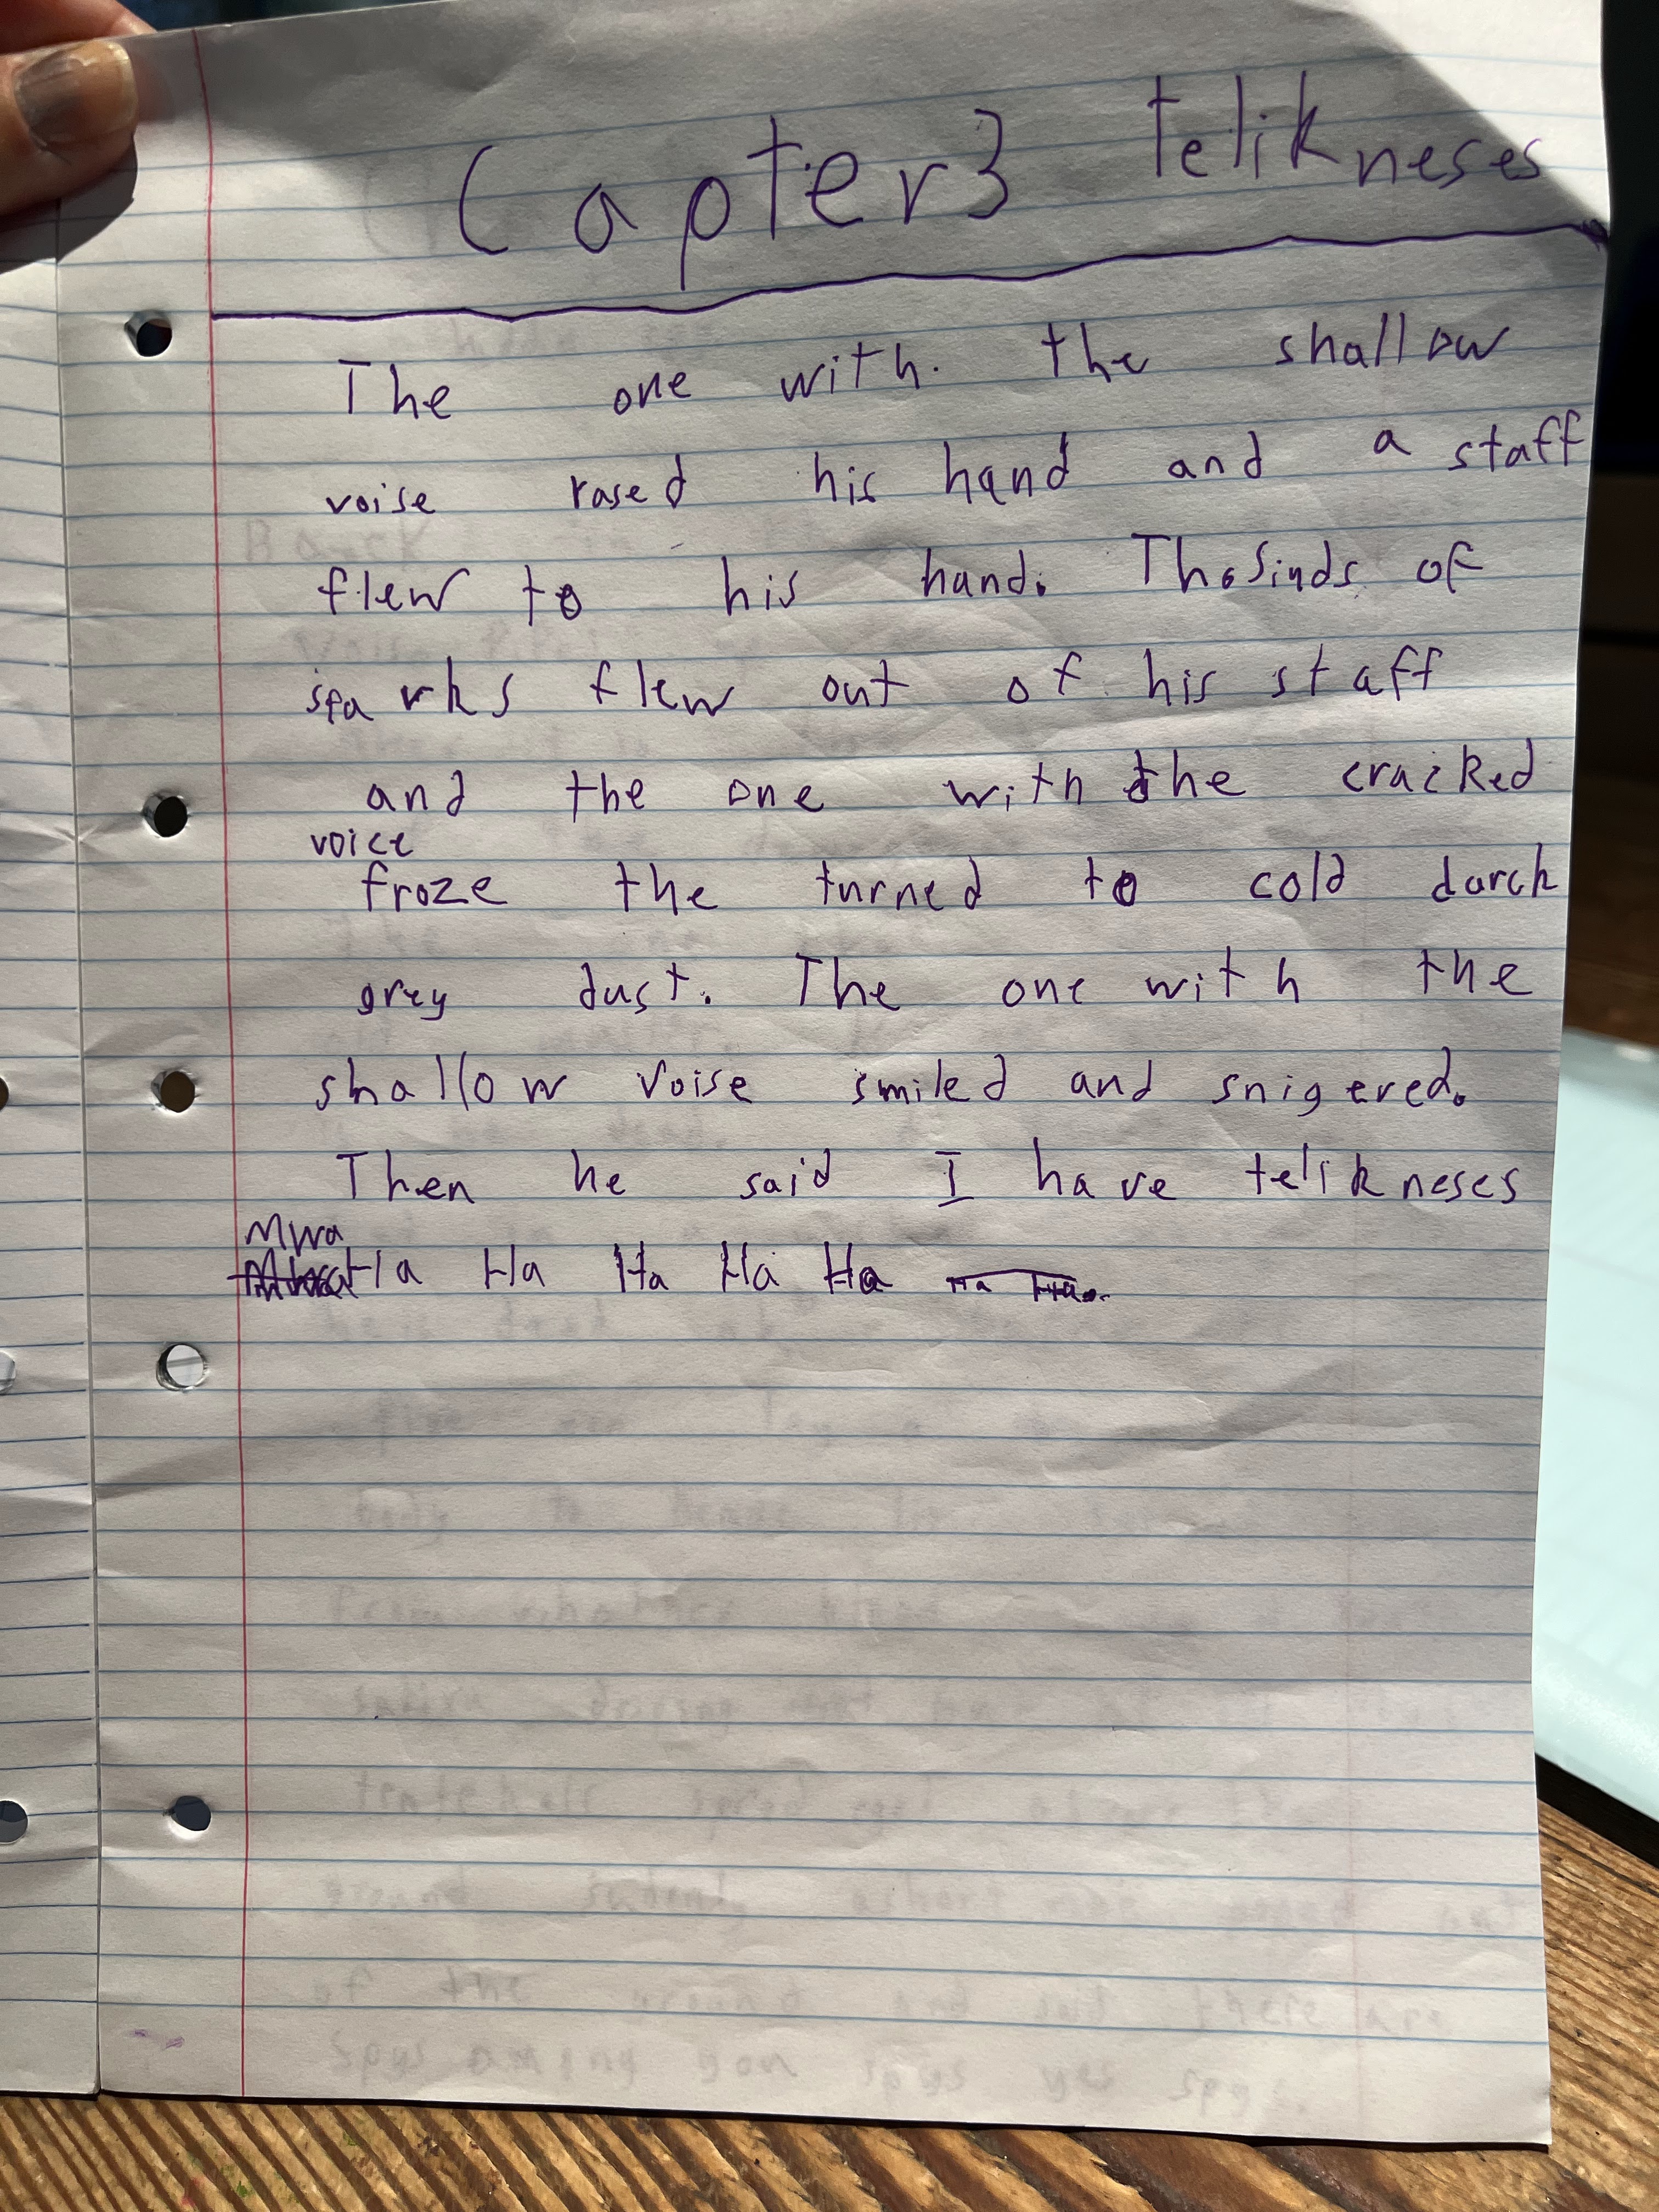 Capter 3 telikneses
The one with. the shallow
voise rased his hand and a staff
flew to his hand. Thosinds of
sparks flew out of his staff
and the one with the cracked
voice
froze the turned to cold darck
grey dust. The one with the
shallow voise smiled and snigered.
Then he said I have telikneses
Mwa
Ha Ha Ha Ha Ha Ha Ha.